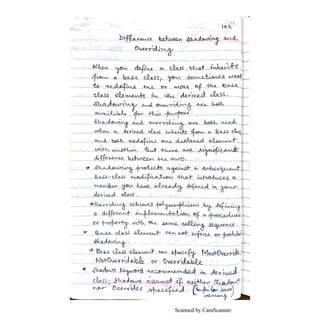 102
Difference between Shadowing and
Overriding
When you define a class that inherits
from a base class, you sometimes want
to redefine one or more of the base
class elements in the derived class.
Shadowing and overriding are both
available for this purpose.
Shadowing and overriding are both used
when a derived class inherits from a base class
and both redefine one declared element
with another. But there are significant
difference between the two.
* Shadowing protects against a subsequent
base-class modification that introduces a
member you have already defined in your
derived class.
* Overriding achieves polymorphism by defining
a different implementation of a procedure
or property with the same calling sequence.
* Base class element can not enforce or prohibit
shadowing.
* Base class element can specify MustOverride,
NotOverridable or Overridable
* Shadows keyword recommended in derived
class; Shadows assumed if neither Shadows
nor Overrides specified.
warning)
Scanned by CamScanner